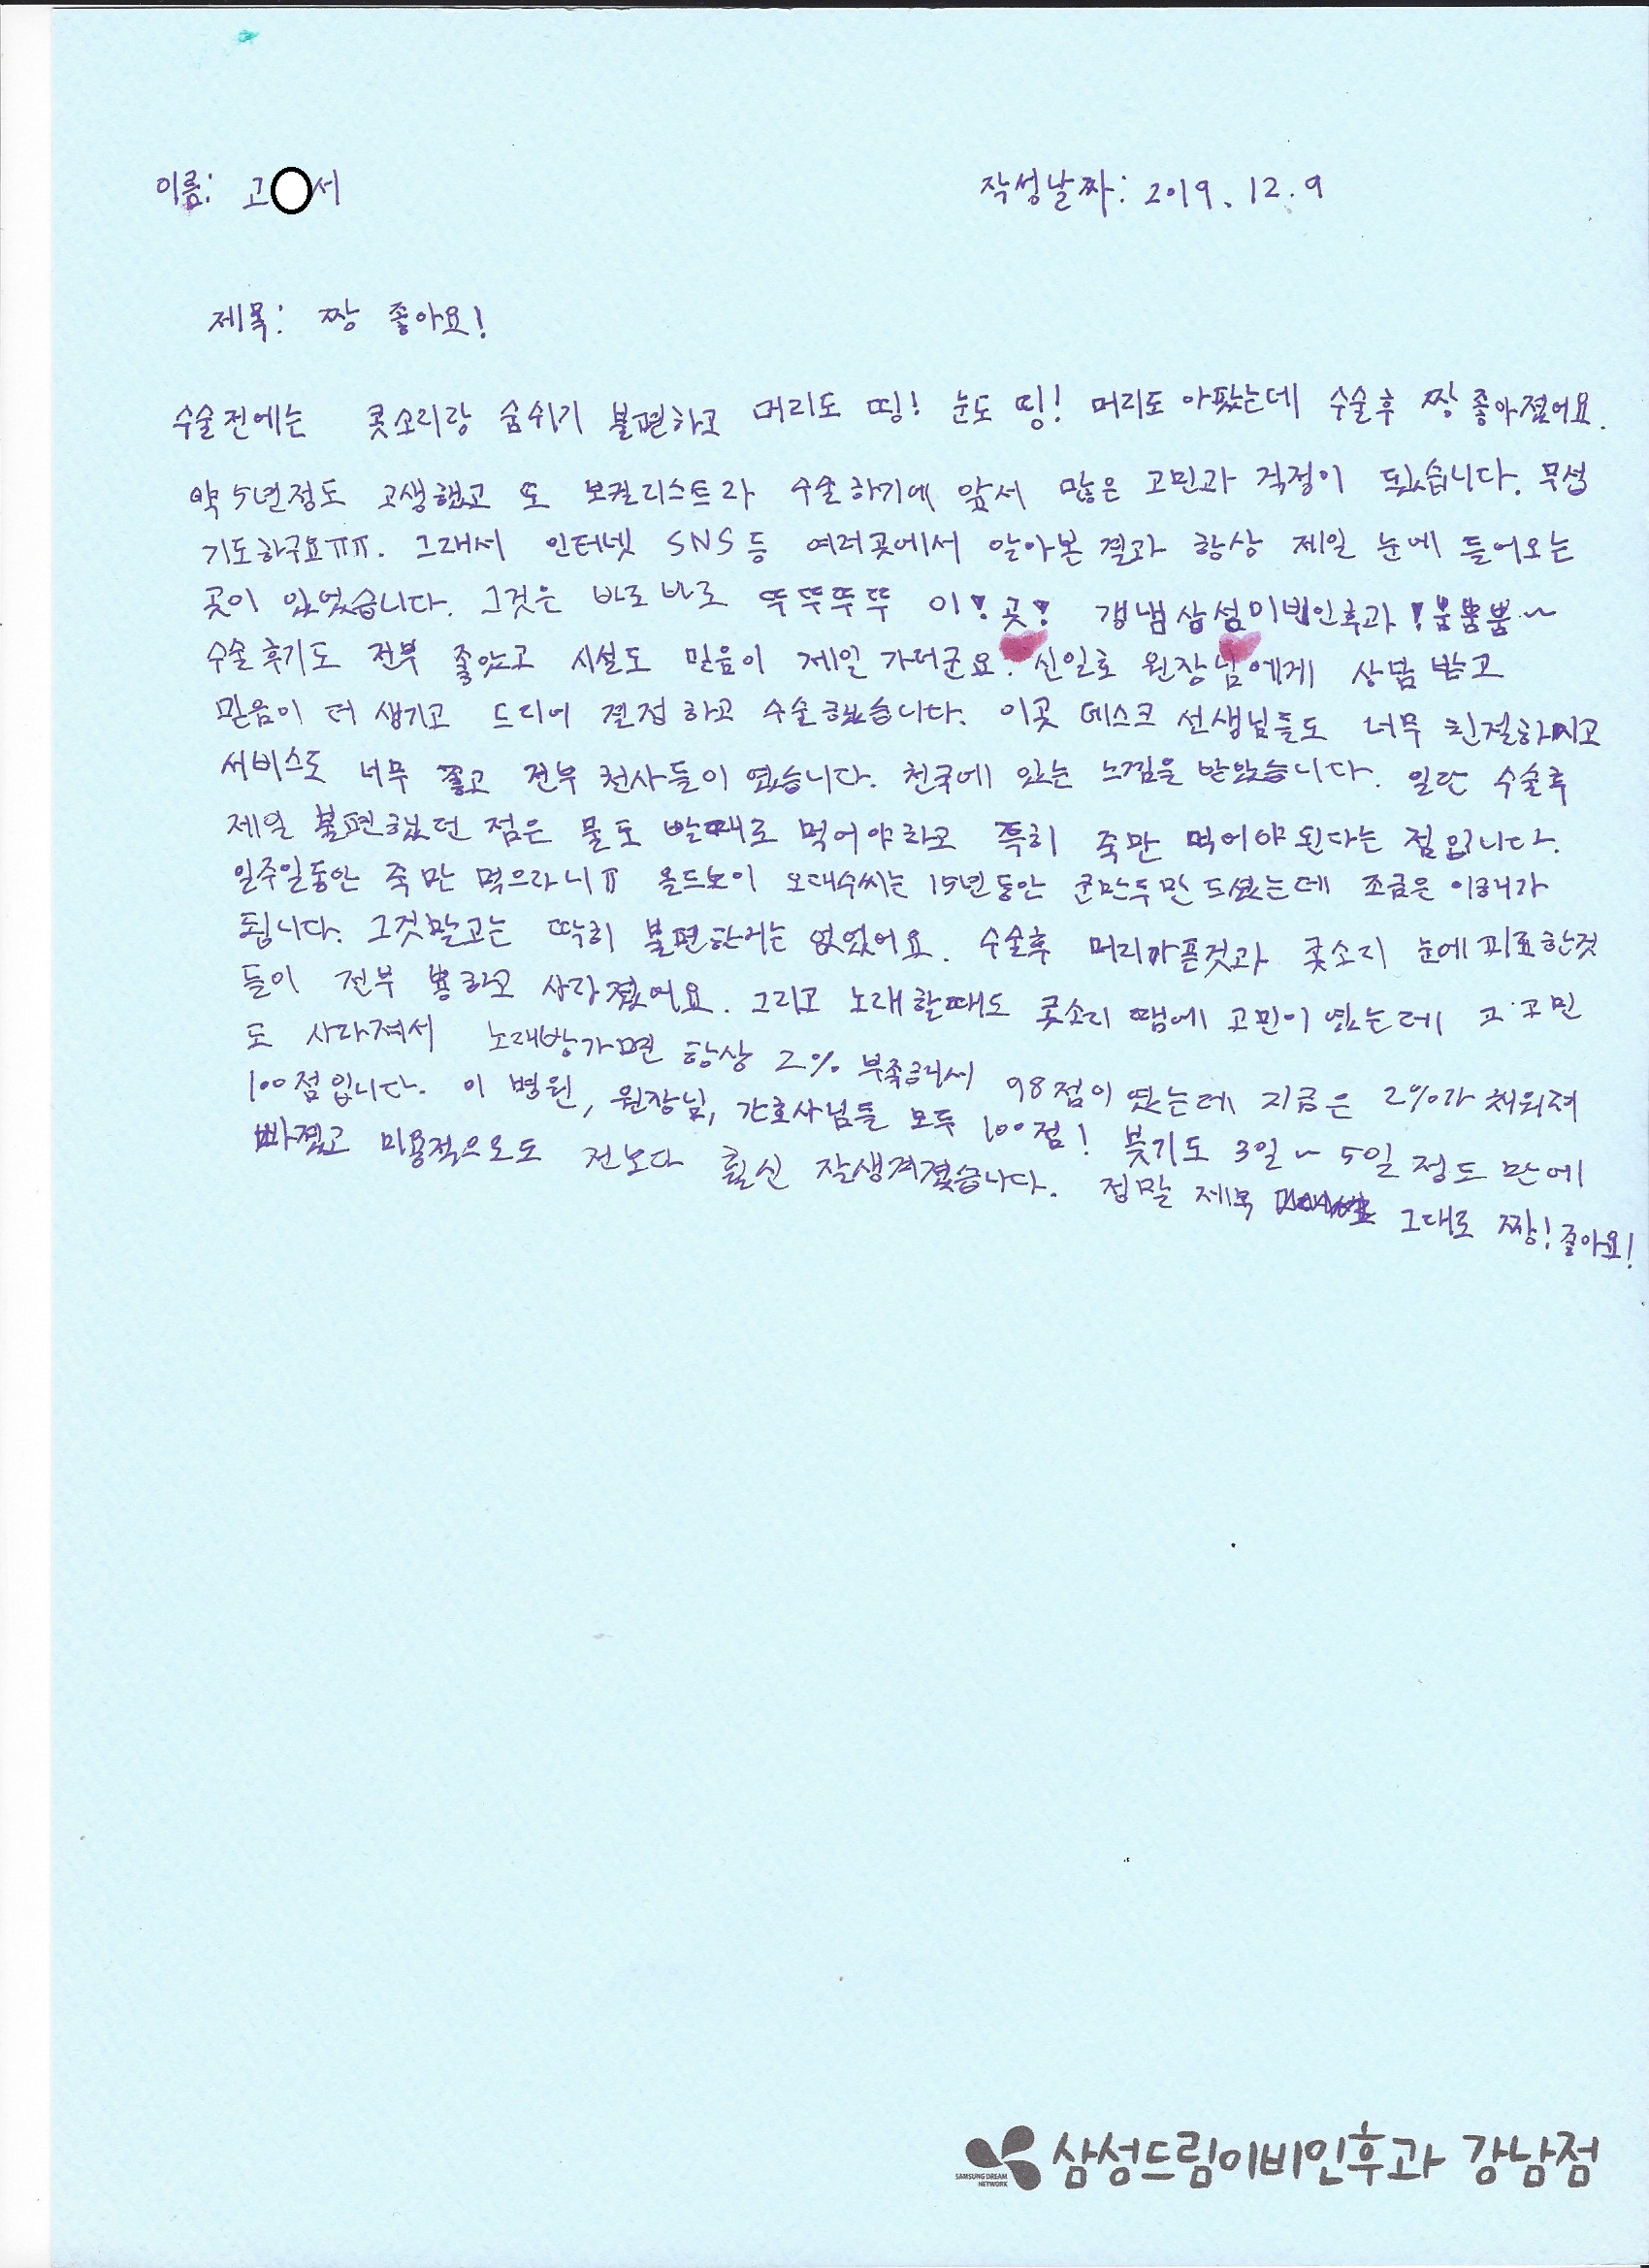 이름: 고 서 작성날짜: 2019. 12. 9
제목: 짱 좋아요!
수술전에는 콧소리랑 숨쉬기 불편하고 머리도 띵! 눈도 띵! 머리도 아팠는데 수술후 짱 좋아졌어요.
약 5년정도 고생했고 또 보컬리스트라 수술하기에 앞서 많은 고민과 걱정이 됬습니다. 무섭
기도하구요ㅠㅠ. 그래서 인터넷 SNS등 여러곳에서 알아본 결과 항상 제일 눈에 들어오는
곳이 있었습니다. 그것은 바로바로 뚜뚜뚜뚜 이! 곳! 갱냄삼성이비인후과!뿜뿜뿜~
수술후기도 전부 좋았고 시설도 믿음이 제일 가더군요. 신일호 원장님에게 상담 받고
믿음이 더 생기고 드디어 결정하고 수술했습니다. 이곳 데스크 선생님들도 너무 친절하시고
서비스도 너무 좋고 전부 천사들이 였습니다. 천국에 있는 느낌을 받았습니다. 일단 수술후
제일 불편했던 점은 물도 빨때로 먹어야하고 특히 죽만 먹어야된다는 점입니다.
일주일동안 죽만 먹으라니ㅠ 올드보이 오대수씨는 15년동안 군만두만 드셨는데 조금은 이해가
됩니다. 그것말고는 딱히 불편한거는 없었어요. 수술후 머리아픈것과 콧소리 눈에피로한것
들이 전부 뿅하고 사라졌어요. 그리고 노래할때도 콧소리 땜에 고민이 였는데 그 고민
도 사라져서 노래방가면 항상 2% 부족해서 98점이 였는데 지금은 2%가 채워져
100점입니다. 이 병원, 원장님, 간호사님들 모두 100점! 붓기도 3일~5일 정도 만에
빠졌고 미용적으로도 전보다 훨신 잘생겨졌습니다. 정말 제목 그대로 짱! 좋아요!
SAMSUNG DREAM
NETWORK
삼성드림이비인후과 강남점